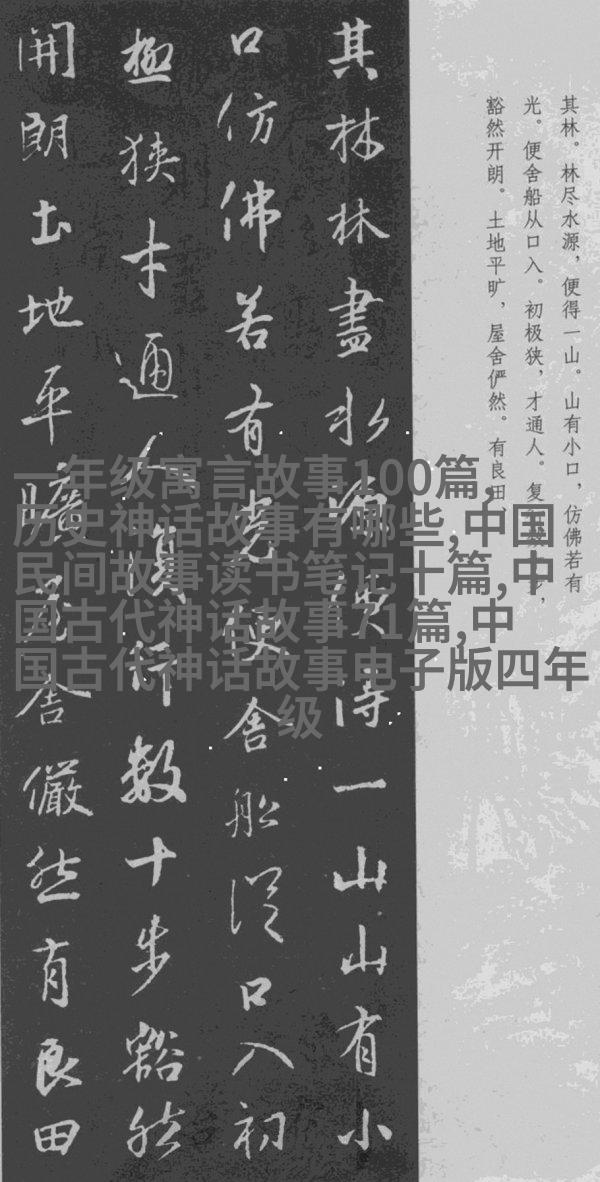 其林。林尽水源，便得一山。山有小口，仿佛若有
光。便舍船从口入。初极狭，才通人。复行数十步，
豁然开朗。土地平旷，屋舍俨然。有良田、
其林林盡水源便得一山山有小
口仿佛若有光便舍船從口入初
極狭才通人復行數十步豁然
開朗土地平曠屋舍儼然有良田
一年级寓言故事100篇,
历史神话故事有哪些,中国
民间故事读书笔记十篇,中
国古代神话故事71篇,中
国古代神话故事电子版四年
级